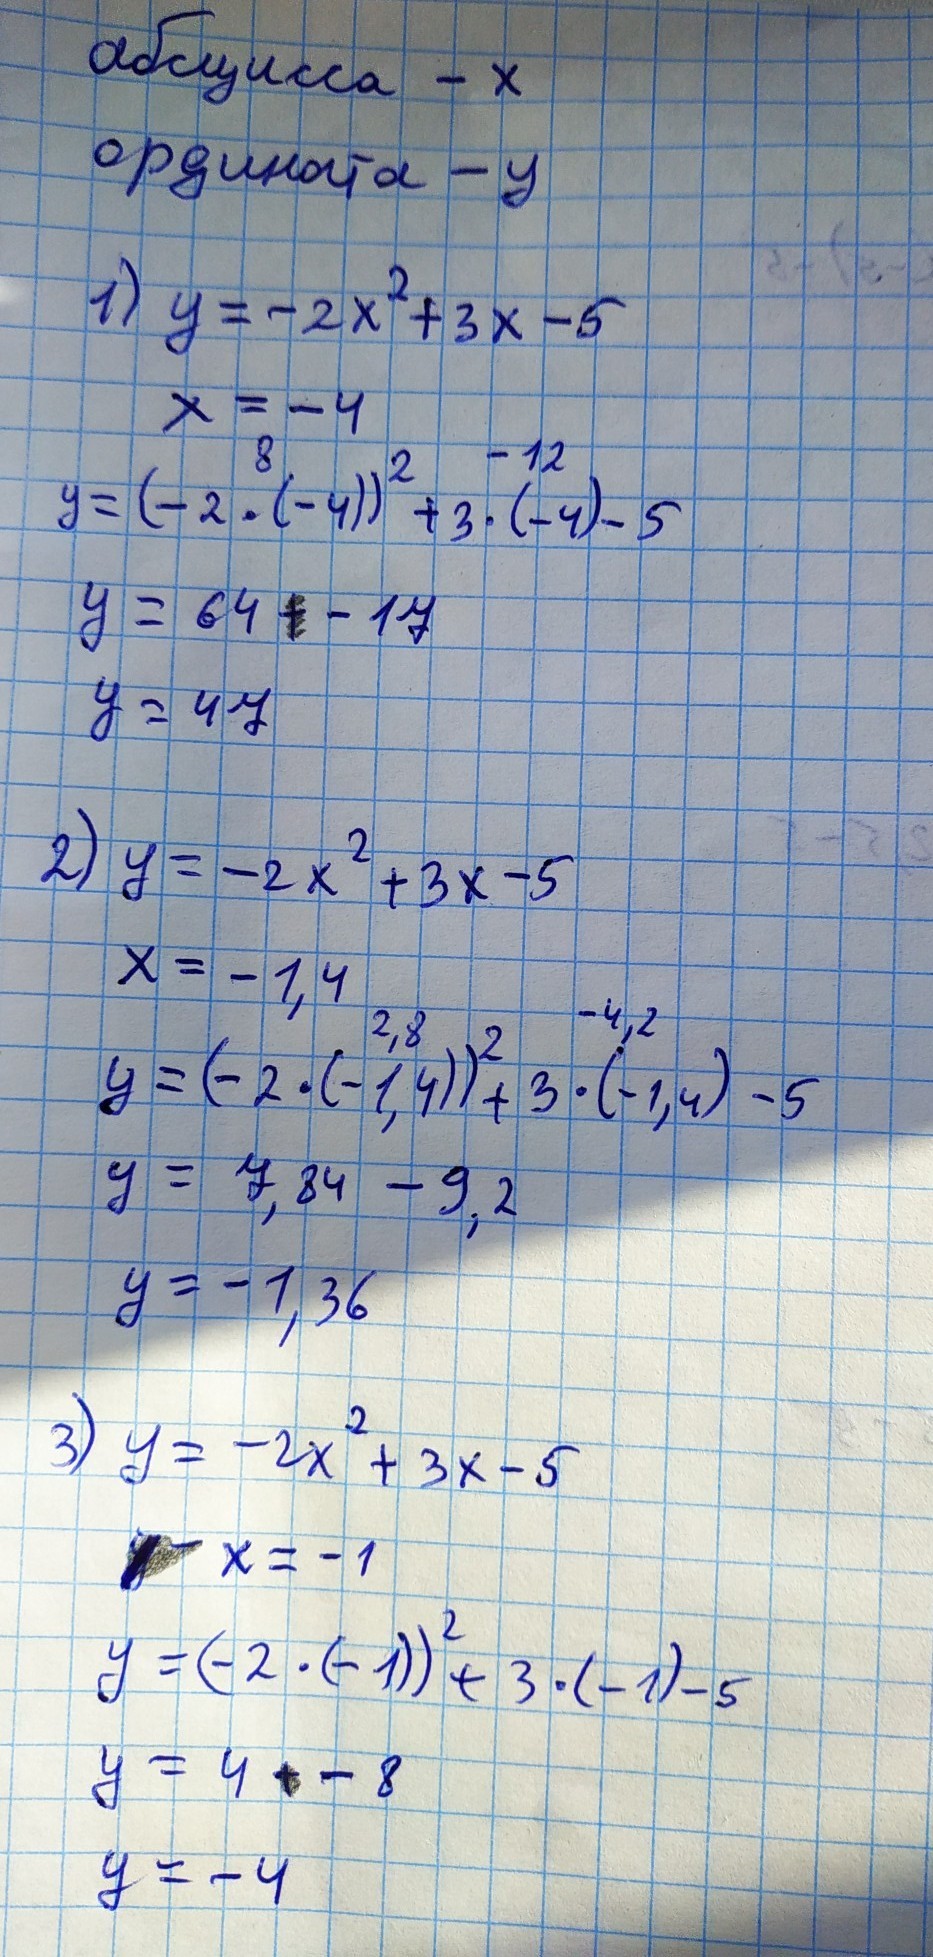 абсцисса - x
ордината - y
1) y = -2x² + 3x - 5
x = -4
8 -12
y = (-2 · (-4))² + 3 · (-4) - 5
y = 64 - 17
y = 47
2) y = -2x² + 3x - 5
x = -1,4
2,8 -4,2
y = (-2 · (-1,4))² + 3 · (-1,4) - 5
y = 7,84 - 9,2
y = -1,36
3) y = -2x² + 3x - 5
x = -1
y = (-2 · (-1))² + 3 · (-1) - 5
y = 4 - 8
y = -4